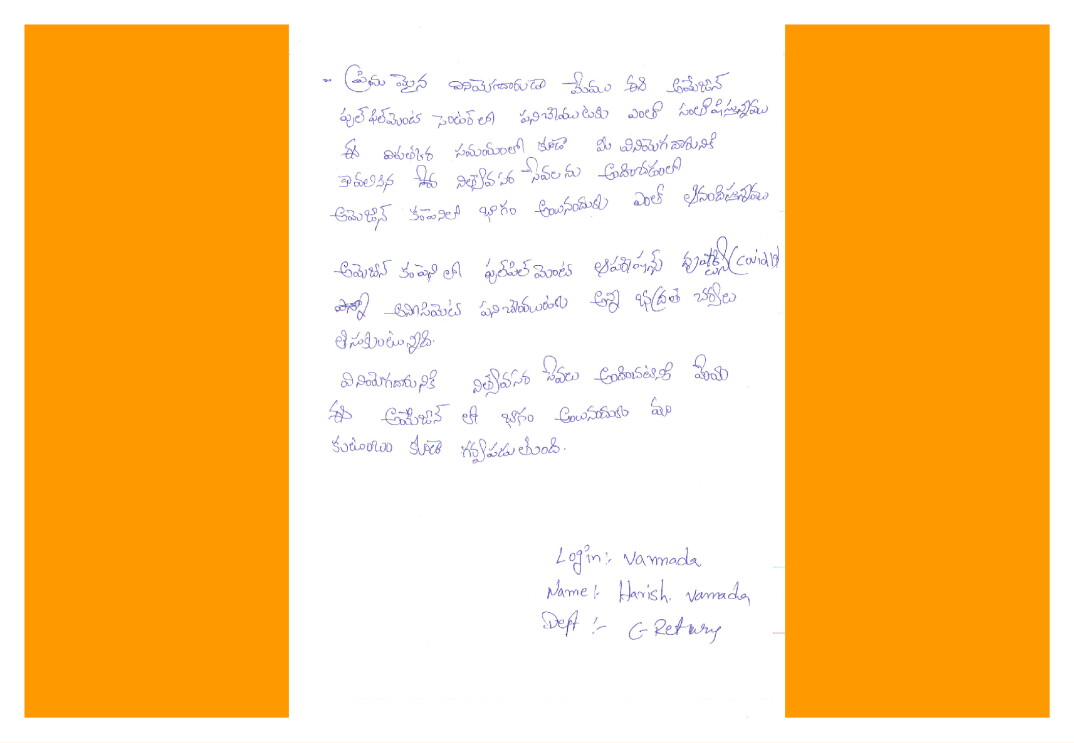 ప్రియ మైన వినియోగదారుడా మేము ఈ అమేజిన్
ఫుల్ ఫిల్మెంట సెంటర్ లో పనిచేయుటకు ఎంతో సంతోషిస్తున్నాము
ఈ విపత్కర సమయంలో కూడా మీ వినియోగదారునికి
కావలసిన నిత్యావసర సేవలను అందించడంలో
అమెజిన్ కంపెనిలో భాగం అయినందుకు ఎంతో ఆనందిస్తున్నాము
అమెజిన్ కంపెని లో ఫుల్‌ఫిల్ మెంట ఆపరేషన్స్ (Covid19)
పనిచేయుటకు అన్ని భద్రత చర్యలు
తీసుకుంటున్నాది.
వినియోగదారునికి నిత్యావసర సేవలు అందించటానికి మేము
ఈ అమేజిన్ లో భాగం అయినందుకు మా
కుటుంబం కూడా గర్వపడుతుంది.
Login:- Vammada
Name:- Harish. Vammada
Dept :- C-Return